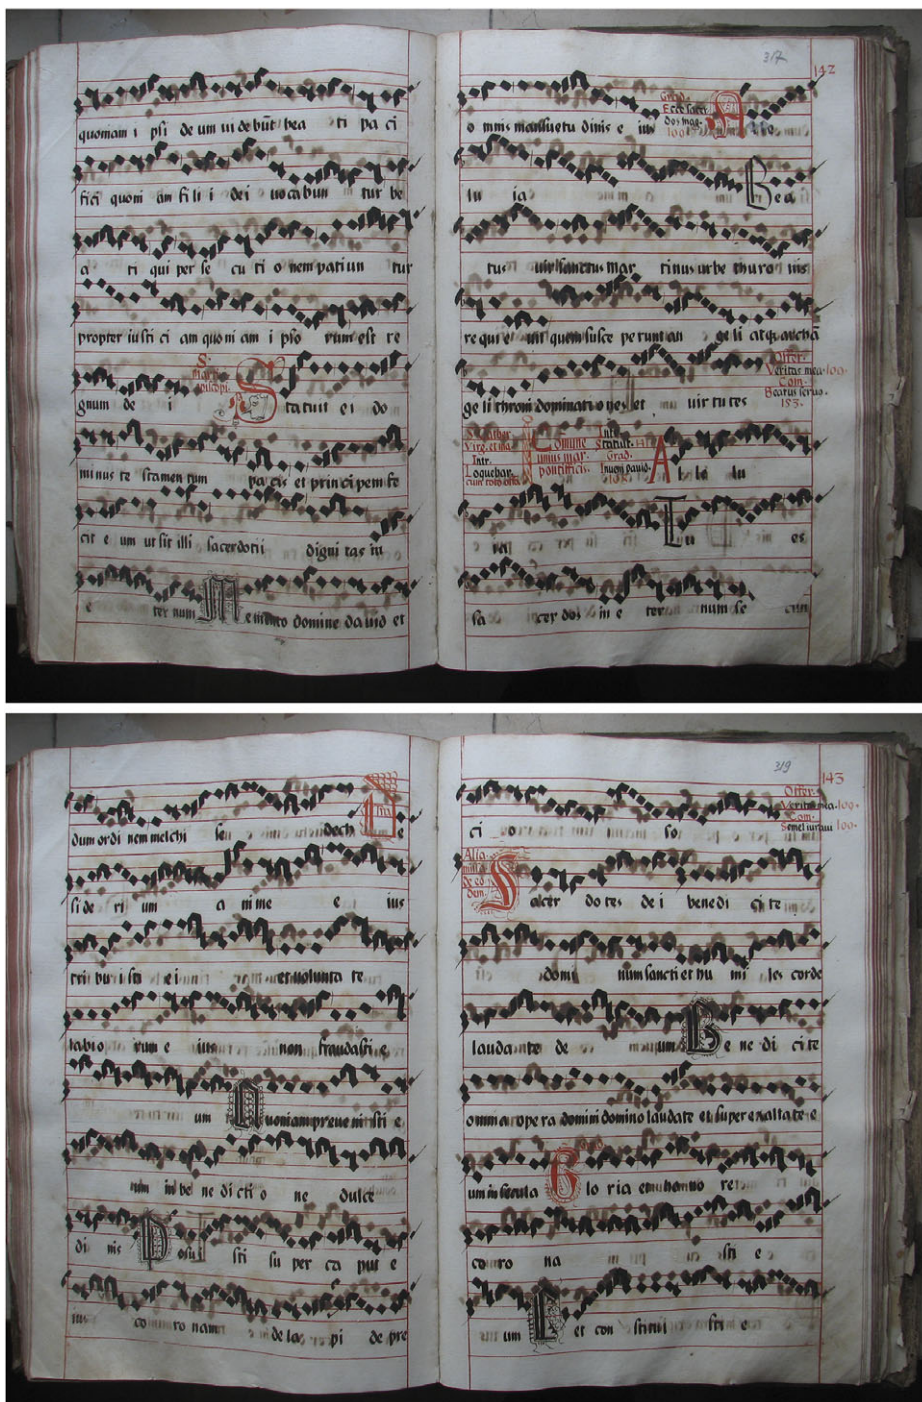 quoniam i psi de um ui de būt bea ti pa ci
fici quoni am fi li i dei uocabun tur be
a ti qui per se cu ti o nem pati un tur
propter iusti ci am quoni am i pso rum est re
gnum de i
S
tatuit ei do
minus te stamen tum pa cis et prin ci pem fe
cit e um ut sit illi sacerdotii digni tas in
e ter num
M emento domine dauid et
317
142
o mnis mansuetu dinis e ius
Grad.
Ecce sacer
dos mag.
A lle
lu ia
B ea
tus uir sanctus mar tinus urbe thuro nis
re qui e uit quem susce pe runt an ge li atq archā
ge li throni dominati o nes et uir tu tes
Offer.
Veritas mea. 100.
Com.
Beatus seruus.
153.
Virg. et
Intr.
Loquebar.
Comune
unius mar.
pontificis.
Intr.
Statuit.
Grad.
Inueni dauid.
A l le lu
T u es
sa cer dos in e ter num se cun
dum ordi nem melchi se dech
si de ri um a nime e ius
tri bu isti e i et uolunta te
labio rum e ius non fraudasti e
um
Q uoniam preue ni sti e
um in be ne di cti o ne dulce
di nis
P osui sti su per ca put e
ius co ro nam de la pi de pre
319
143
ci o so
Offer.
Veritas mea. 100.
Com.
Semel iuraui 100.
S acer do tes de i bene di ci te
domi num sancti et hu mi les corde
lauda te de um
B e ne di ci te
omnia ope ra domini domino laudate et super exaltate e
um in secula
G lo ria et honno re
co ro na sti e
um
E t con stitui sti e